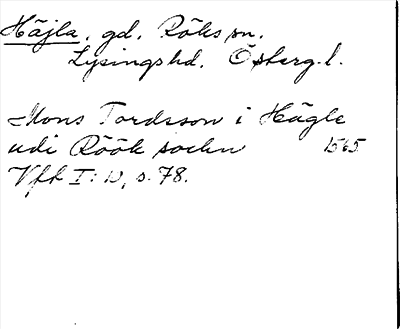 Häjla, gd, Röks sn.
Lysings hd. Österg. l.
Mons Tordsson i Hägle
udi Röök sochn 1565
Vfk I: 10, s. 78.